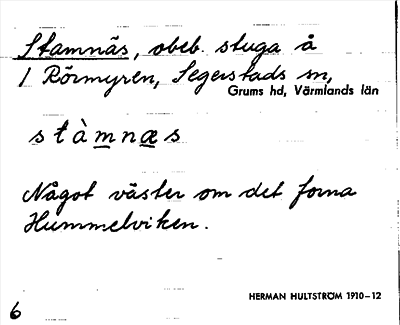 Stamnäs, obeb. stuga å
1 Rörmyren, Segerstads sn,
Grums hd, Värmlands län
stàmnæs
Något väster om det forna
Hummelviken.
HERMAN HULTSTRÖM 1910-12
6